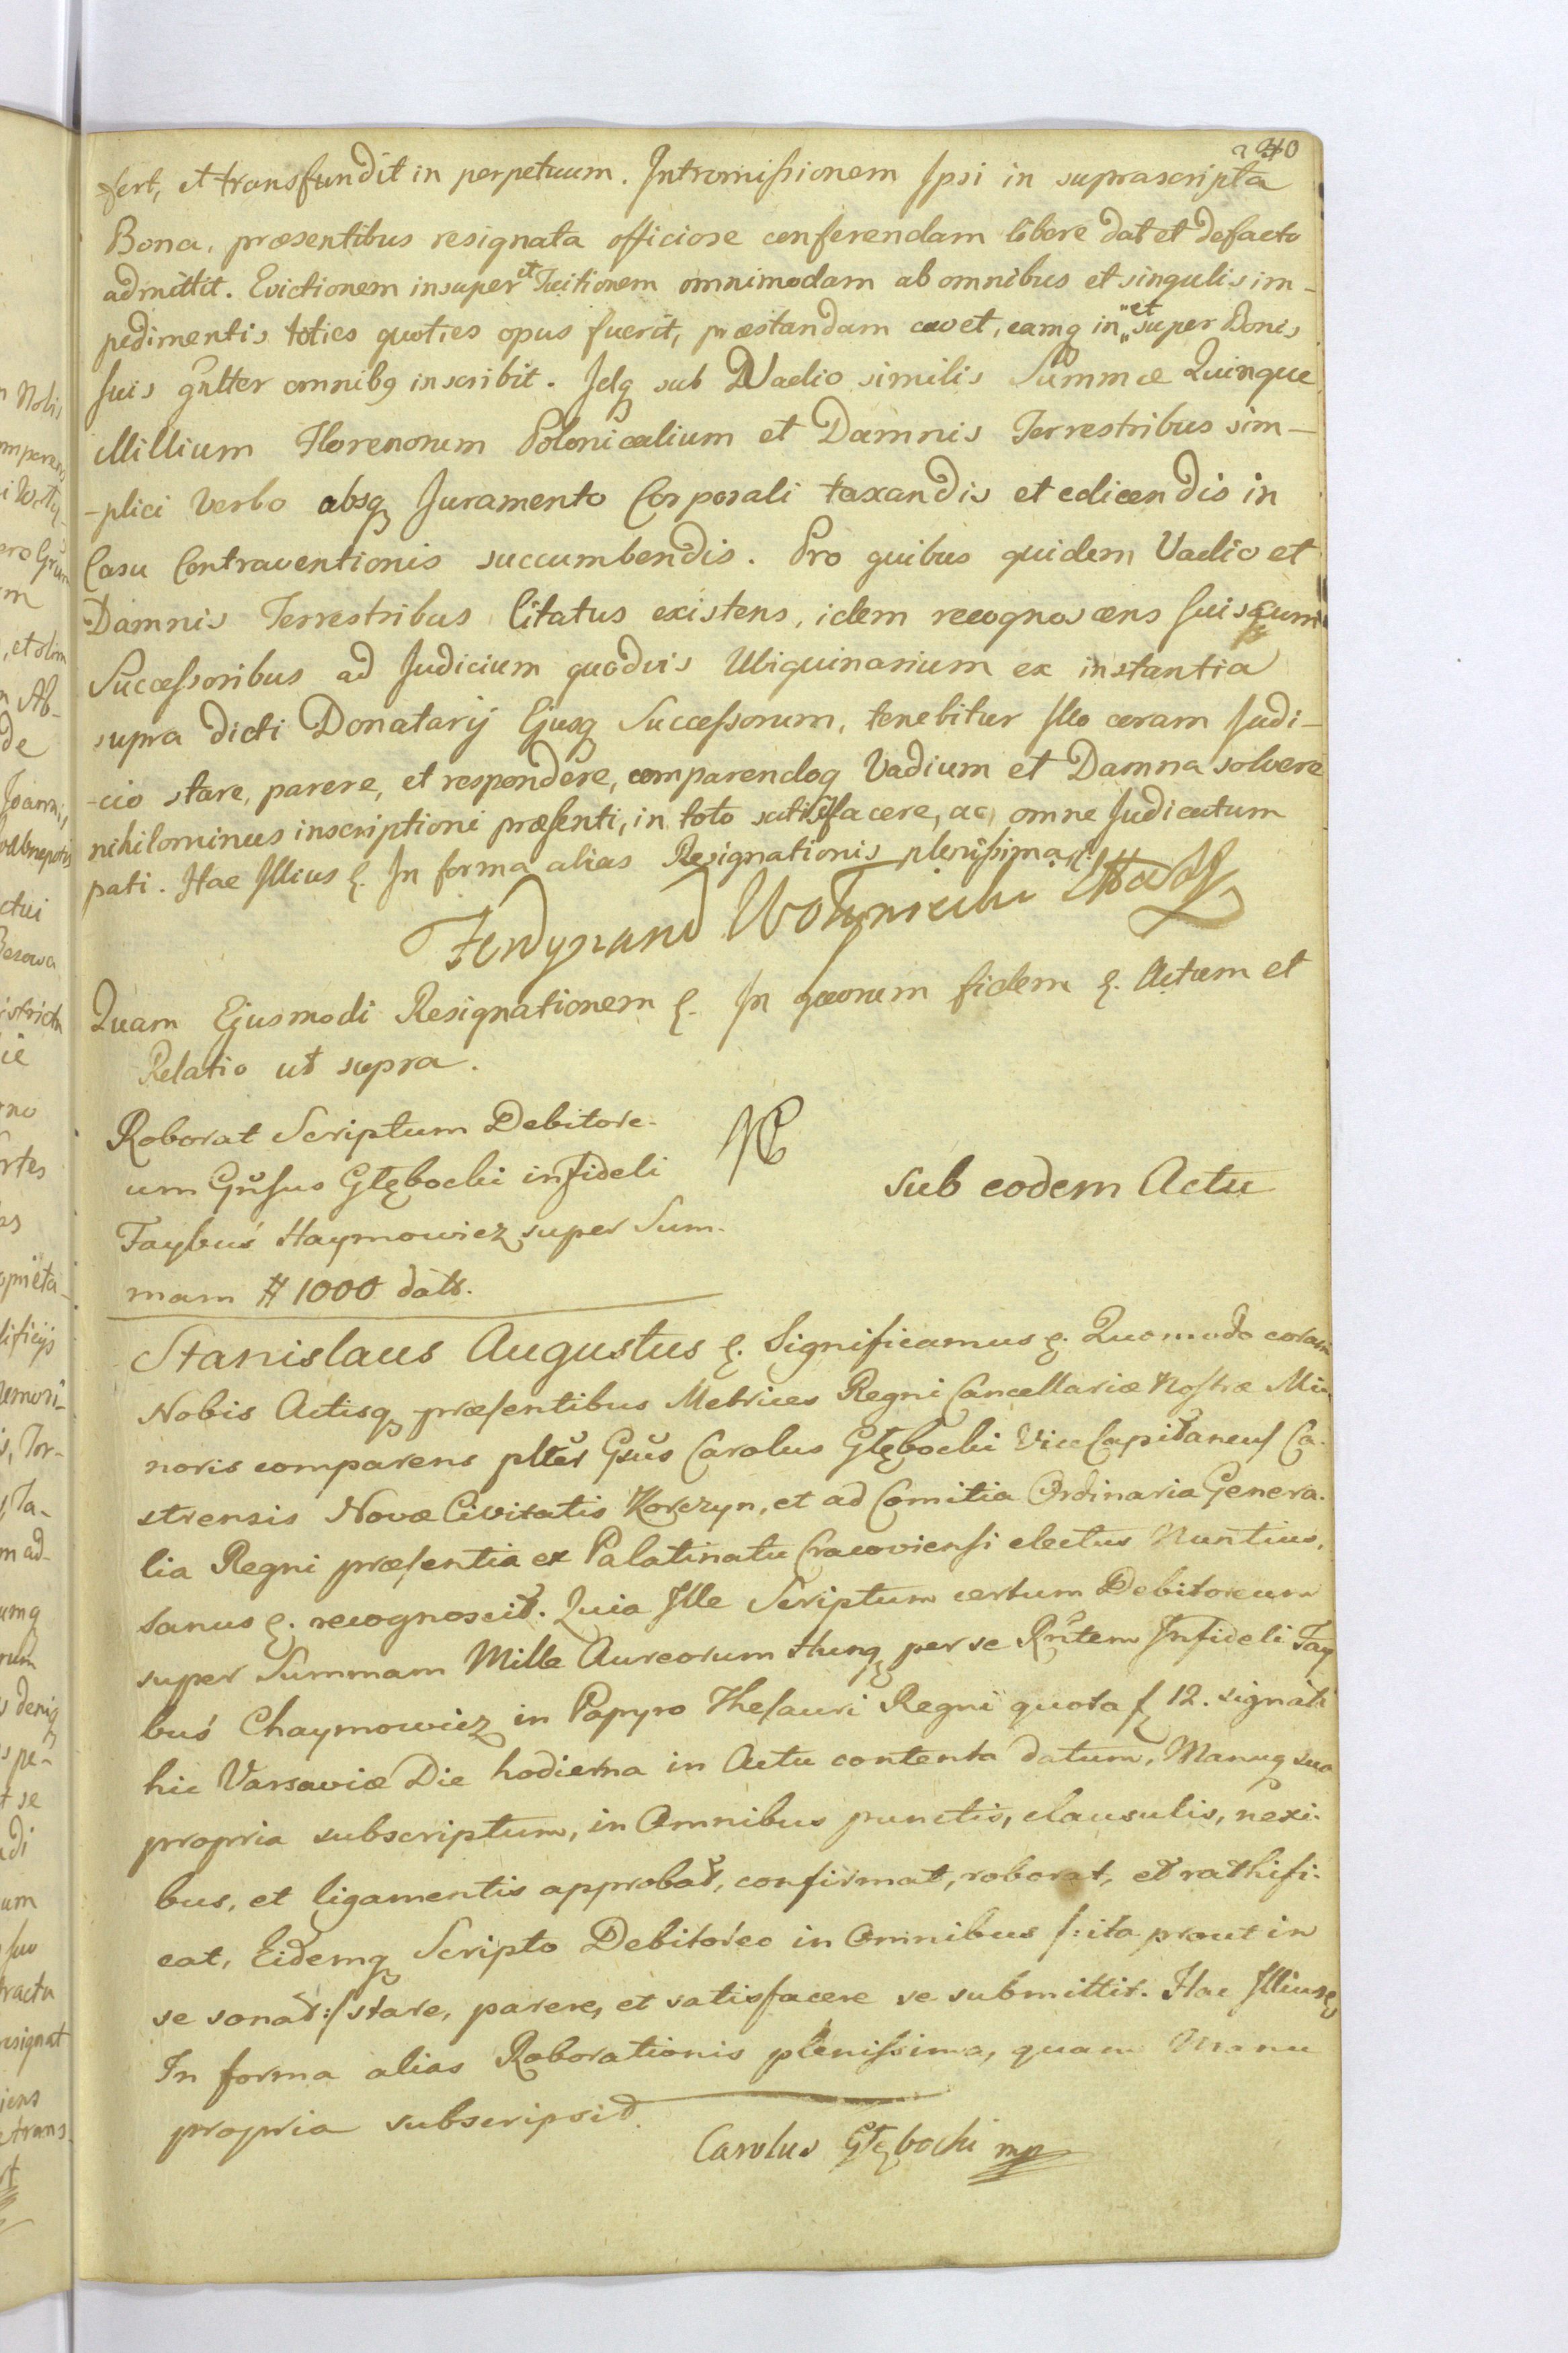 fert, et transfundit in perpetuum. Intromissionem Ipsi in suprascripta
Bona, præsentibus resignata officiose conferendam libere dat et defacto
admittit. Evictionem insuper et Tuitionem omnimodam ab omnibus et singulis im-
pedimentis toties quoties opus fuerit, præstandam cavet, eamq in et super Bonis
suis gñlter omnibq inscribit. Idq sub Vadio similis Summæ Quinque
Millium Florenorum Polonicalium et Damnis Terrestribus sim-
-plici Verbo absq Juramento Corporali taxandis et edicendis in
Casu Contraventionis succumbendis. Pro quibus quidem Vadio et
Damnis Terrestribus Citatus existens, idem recognoscens suis cum
Successoribus ad Judicium quodvis Ubiquinarium ex instantia
supra dicti Donatarij Ejusq Successorum, tenebitur Illo coram Judi-
-cio stare, parere, et respondere, comparendoq Vadium et Damna solvere
nihilominus inscriptioni præsenti, in toto satisfacere, ac omne Judicatum
pati. Hac Illius &. In forma alias Resignationis plenissima &.
Ferdynand
Quam Ejusmodi Resignationem &. In quorum fidem &. Actum et
Relatio ut supra.
Roborat Scriptum Debitore-
um Gñsus Głębocki infideli
Faybuś Haymowicz super Sum-
mam # 1000 datt.
sub eodem Actu
Stanislaus Augustus &. Significamus &. Quomodo coram
Nobis Actisq præsentibus Metrices Regni Cancellariæ Nostræ Mi-
noris comparens pltěr Gsŭs Carolus Głębocki ViceCapitaneus Ca-
strensis Novæ Civitatis Korczyn, et ad Comitia Ordinaria Genera-
lia Regni præsentia ex Palatinatu Cracoviensi electus Nuntius,
sanus &. recognoscit. Quia Ille Scriptum certum Debitoreum
super Summam Mille Aureorum Hung per se Rñtem Infideli Fay
buś Chaymowicz in Papyro Thesauri Regni quota f 12. signati
hic Varsaviæ Die hodierna in Actu contenta datum, Manuq sua
propria subscriptum, in Omnibus punctis, clausulis, nexi-
bus, et ligamentis approbat, confirmat, roborat, et rathifi-
cat, Eidemq Scripto Debitoreo in Omnibus /: ita prout in
se sonat :/ stare, parere, et satisfacere se submittit. Hac Illius &
In forma alias Roborationis plenissima, quam Manu
propria subscripsit.
Carolus Głębocki mp